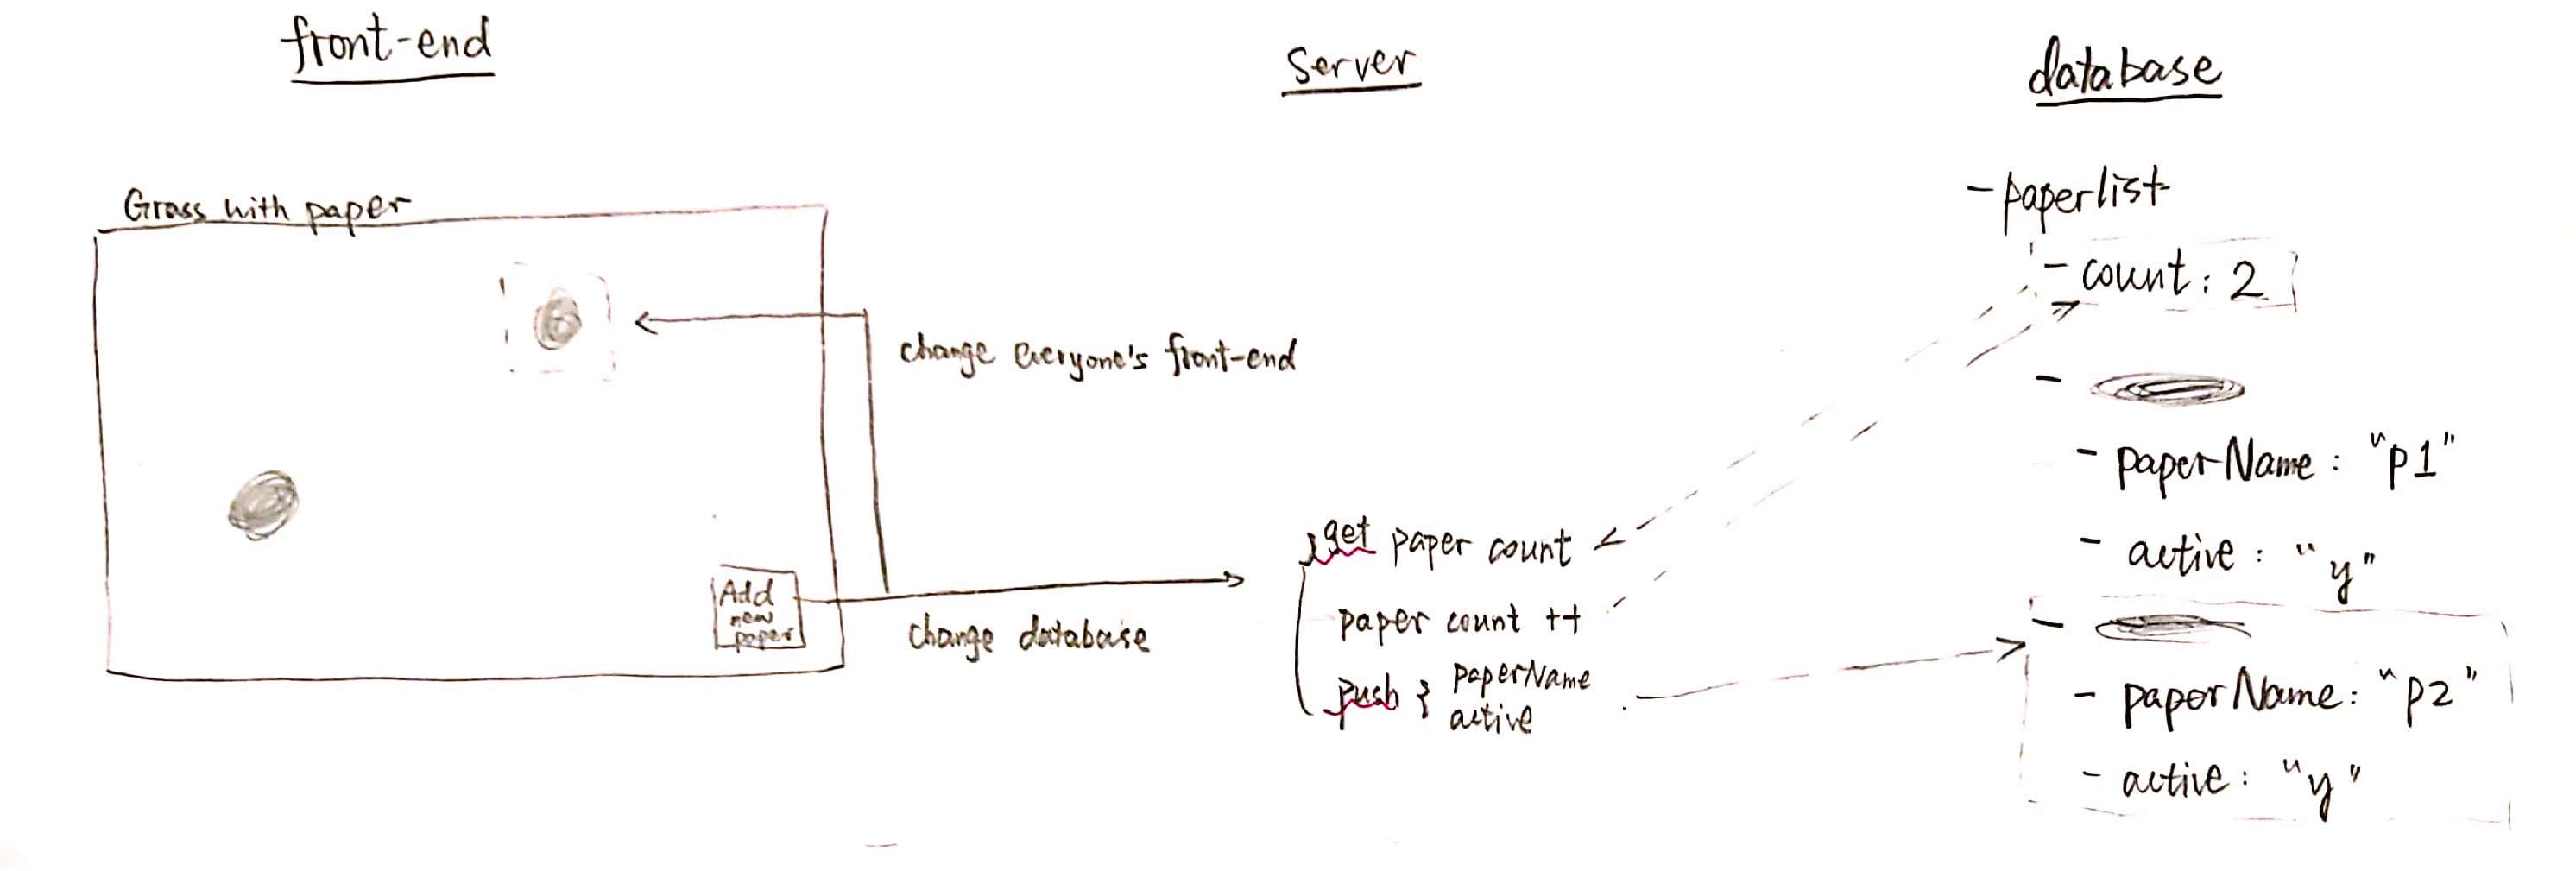 front-end
Server
database
Grass with paper
Add
new
paper
change everyone's front-end
change database
get paper count
paper count ++
push } paperName
active
-paperlist
- count: 2
-
- paperName: "p1"
- active: "y"
-
- paperName: "p2"
- active: "y"